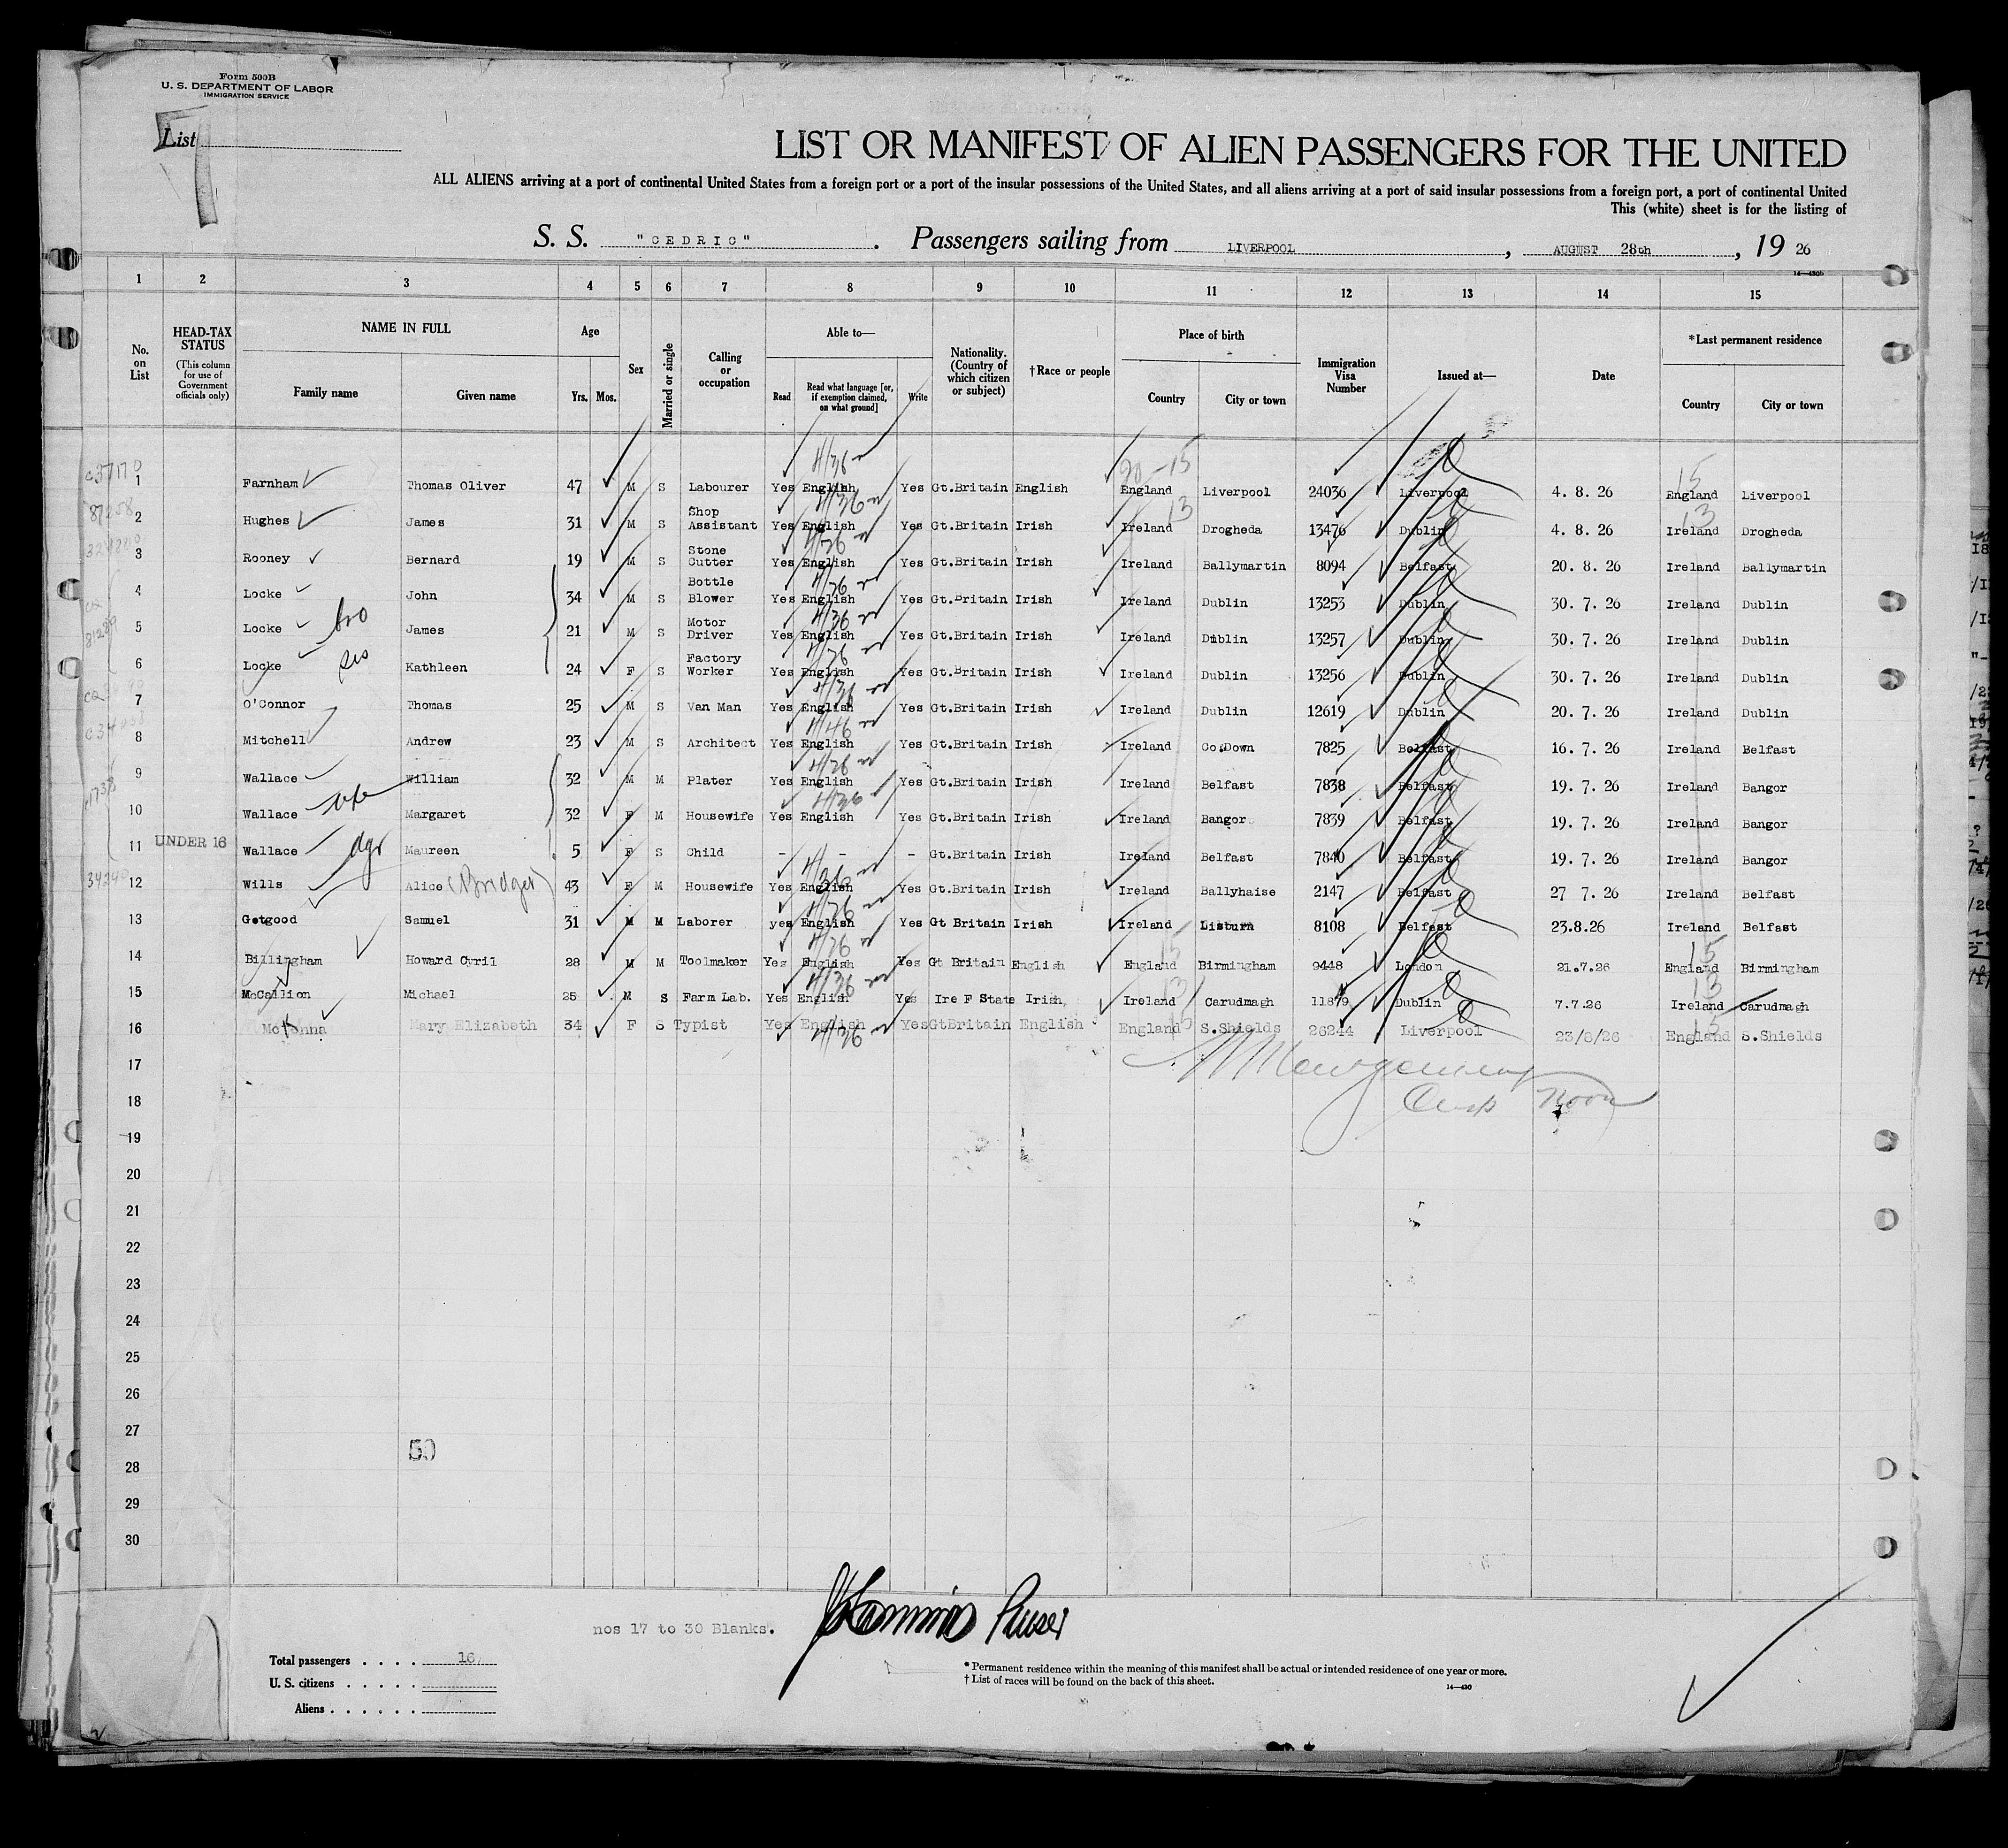 Form 500B
U. S. DEPARTMENT OF LABOR
IMMIGRATION SERVICE
List
LIST OR MANIFEST OF ALIEN PASSENGERS FOR THE UNITED
ALL ALIENS arriving at a port of continental United States from a foreign port or a port of the insular possessions of the United States, and all aliens arriving at a port of said insular possessions from a foreign port, a port of continental United
This (white) sheet is for the listing of
S. S. "CEDRIC". Passengers sailing from LIVERPOOL, AUGUST 28th, 19 26
1 2 3 4 5 6 7 8 9 10 11 12 13 14 15
No. on List
HEAD-TAX STATUS (This column for use of Government officials only)
NAME IN FULL Family name Given name
Age Yrs. Mos.
Sex
Married or single
Calling or occupation
Able to— Read Read what language [or, if exemption claimed, on what ground] Write
Nationality. (Country of which citizen or subject)
†Race or people
Place of birth Country City or town
Immigration Visa Number
Issued at—
Date
*Last permanent residence Country City or town
1 Farnham Thomas Oliver 47 M S Labourer Yes English Yes Gt.Britain English England Liverpool 24036 Liverpool 4. 8. 26 England Liverpool
2 Hughes James 31 M S Shop Assistant Yes English Yes Gt.Britain Irish Ireland Drogheda 13476 Dublin 4. 8. 26 Ireland Drogheda
3 Rooney Bernard 19 M S Stone Cutter Yes English Yes Gt.Britain Irish Ireland Ballymartin 8094 Belfast 20. 8. 26 Ireland Ballymartin
4 Locke John 34 M S Bottle Blower Yes English Yes Gt.Britain Irish Ireland Dublin 13253 Dublin 30. 7. 26 Ireland Dublin
5 Locke bro James 21 M S Motor Driver Yes English Yes Gt.Britain Irish Ireland Dublin 13257 Dublin 30. 7. 26 Ireland Dublin
6 Locke sis Kathleen 24 F S Factory Worker Yes English Yes Gt.Britain Irish Ireland Dublin 13256 Dublin 30. 7. 26 Ireland Dublin
7 O'Connor Thomas 25 M S Van Man Yes English Yes Gt.Britain Irish Ireland Dublin 12619 Dublin 20. 7. 26 Ireland Dublin
8 Mitchell Andrew 23 M S Architect Yes English Yes Gt.Britain Irish Ireland Co.Down 7825 Belfast 16. 7. 26 Ireland Belfast
9 Wallace William 32 M M Plater Yes English Yes Gt.Britain Irish Ireland Belfast 7838 Belfast 19. 7. 26 Ireland Bangor
10 Wallace wife Margaret 32 F M Housewife Yes English Yes Gt.Britain Irish Ireland Bangor 7839 Belfast 19. 7. 26 Ireland Bangor
11 UNDER 16 Wallace dgr Maureen 5 F S Child - - - Gt.Britain Irish Ireland Belfast 7840 Belfast 19. 7. 26 Ireland Bangor
12 Wills Alice (Bridget) 43 F M Housewife Yes English Yes Gt.Britain Irish Ireland Ballyhaise 2147 Belfast 27 7. 26 Ireland Belfast
13 Getgood Samuel 31 M M Laborer yes English Yes Gt Britain Irish Ireland Lisburn 8108 Belfast 23.8.26 Ireland Belfast
14 Billingham Howard Cyril 28 M M Toolmaker Yes English Yes Gt Britain English England Birmingham 9448 London 21.7.26 England Birmingham
15 McCallion Michael 25 M S Farm Lab. Yes English Yes Ire F State Irish Ireland Carudmagh 11879 Dublin 7.7.26 Ireland Carudmagh
16 McKenna Mary Elizabeth 34 F S Typist Yes English Yes GtBritain English England S.Shields 26244 Liverpool 23/8/26 England S.Shields
17
18
19
20
21
22
23
24
25
26
27
28
29
30
50
nos 17 to 30 Blanks.
Purser
Total passengers . . . . 16
U. S. citizens . . . . .
Aliens . . . . . .
* Permanent residence within the meaning of this manifest shall be actual or intended residence of one year or more.
† List of races will be found on the back of this sheet.
14—430